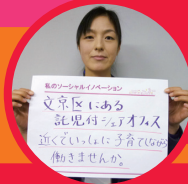 私のソーシャルイノベーション
文京区にある
託児付シェアオフィス
近くでいっしょに子育てしながら
働きませんか。